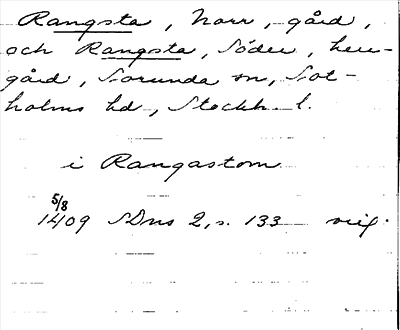 Rangsta, Norr, gård,
och Rangsta, Söder, herr-
gård, Sorunda sn, Sot-
holms hd, Stockh. l.
i Rangastom
5/8
1409 SDns 2, s. 133